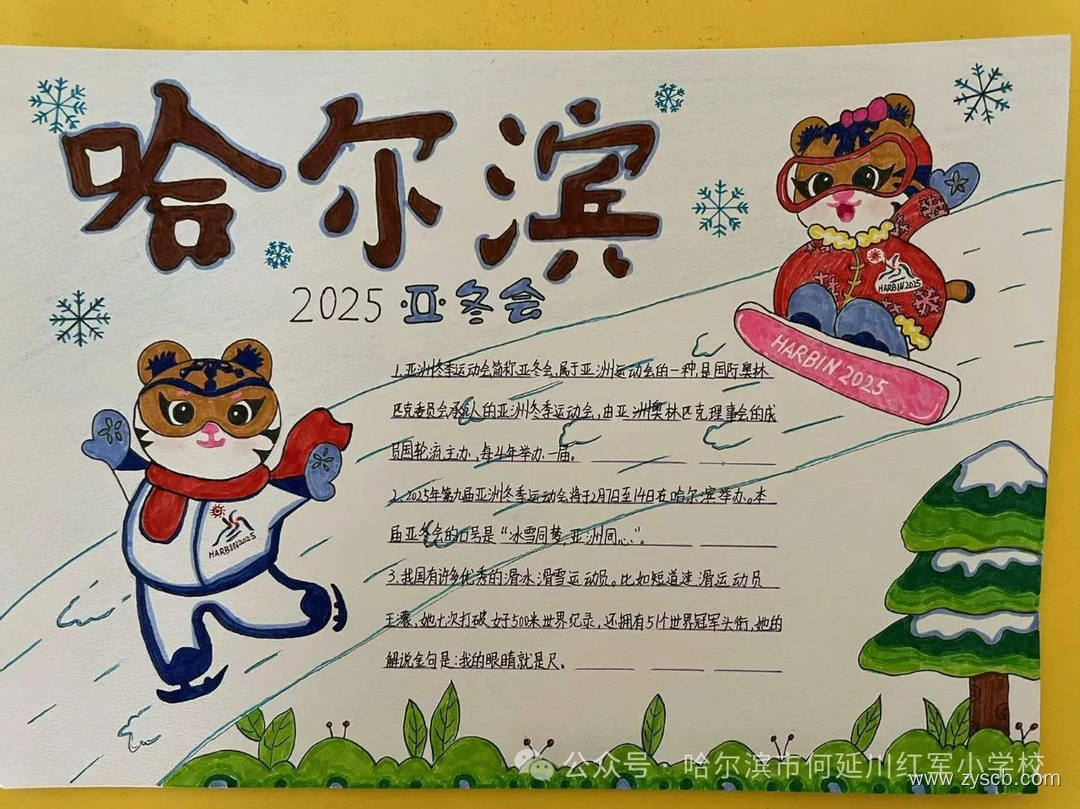 哈尔滨
2025 亚冬会
HARBIN 2025
HARBIN 2025
1.亚洲冬季运动会简称亚冬会,属于亚洲运动会的一种,是国际奥林
匹克委员会承认的亚洲冬季运动会,由亚洲奥林匹克理事会的成
员国轮流主办,每4年举办一届。
2.2025年第九届亚洲冬季运动会将于2月7日至14日在哈尔滨举办。本
届亚冬会的口号是“冰雪同梦,亚洲同心”。
3.我国有许多优秀的滑冰滑雪运动员。比如短道速滑运动员
王濛,她七次打破女子500米世界纪录,还拥有51个世界冠军头衔,她的
解说金句是:我的眼睛就是尺。
HARBIN2025
公众号 · 哈尔滨市何延川红军小学校
www.zyscb.com